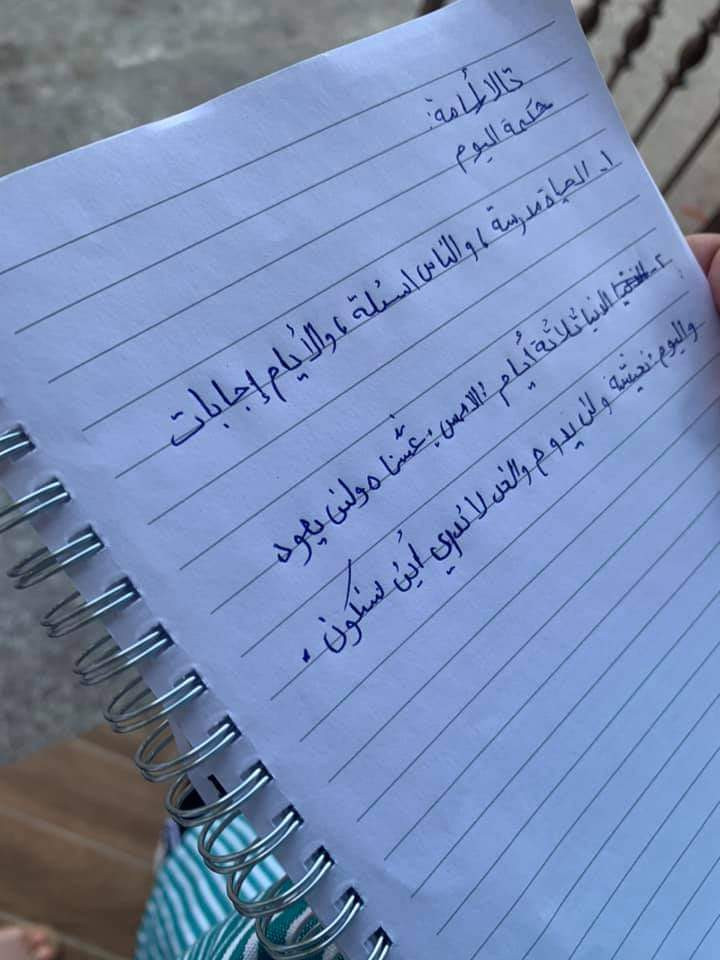 قالا لمامة:
حكمة اليوم
١. الحياة مدرسة ، والناس اسئلة ، والأيام إجابات
٢- الدنيا ثلاثة أيام : الامس : عشناه ولن يعود
واليوم : نعيشه ولن يدوم والغد لا ندري أين سنكون .